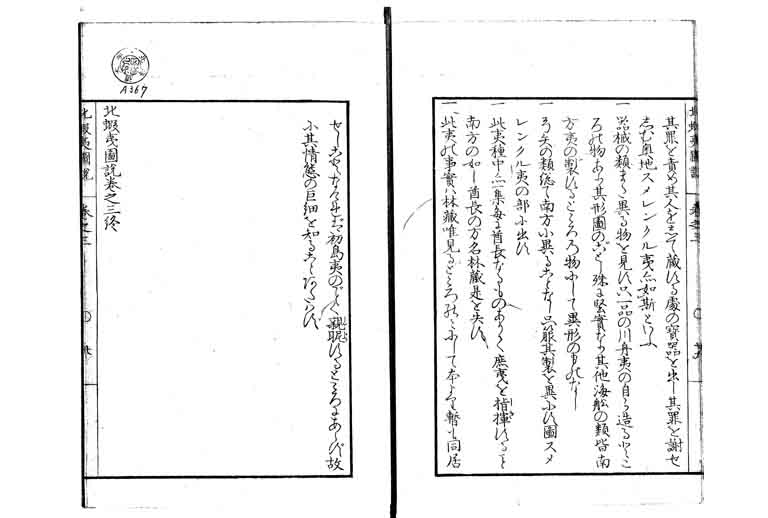 其罪を責め其人をして蔵する處の寶器を出し其罪を謝せ
しむ奥地スメレンクル夷亦如斯といふ
一器械の類また異る物を見ず只一品の川舟夷の自ら造るところ
の物あり其形圖のごとし殊に堅實なり其他海舩の類皆南
方夷の製するところの物にして異形のものなし
一弓矢の類総て南方に異ることなし只服其製を異にす圖スメ
レンクル夷の部に出す
一此夷種中亦一集毎に酋長なるものありて庶夷を指揮すること
南方の如し酋長の方名林蔵是を失す
一此夷の事實林蔵唯見るところのみにして本よりも暫も同居
せしことなければ初島夷のごとく親昵するところにあらず故
に其情態の巨細を知ることあたはず
北蝦夷圖説巻之三終
北蝦夷圖説 巻之三 〇 廿九
北蝦夷圖説 巻之三 〇 卅
A367